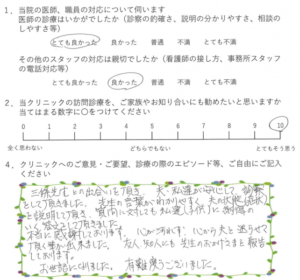 1、当院の医師、職員の対応について伺います
医師の診療はいかがでしたか（診察の的確さ、説明の分かりやすさ、相談のしやすさ等）
とても良かった 良かった 普通 不満 とても不満
その他のスタッフの対応は親切でしたか（看護師の接し方、事務所スタッフの電話対応等）
とても良かった 良かった 普通 不満 とても不満
2、当クリニックの訪問診療を、ご家族やお知り合いにも勧めたいと思いますか
当てはまる数字に○をつけてください
0 1 2 3 4 5 6 7 8 9 10
全く思わない どちらでもない とてもそう思う
4、クリニックへのご意見・ご要望、診療の際のエピソード等、ご自由にご記入ください
先生との出会いを頂き 夫・私達が安心して 診察
として頂きました。先生の言葉が
と説明して頂き、質問に対しても私達（子供）に
いく
本当に感謝しております。 心から夫と
頂く事が出来ました。 友人、知人にも先生のおかげさまと報告
しております。
お世話になりました。 有難度うございました。